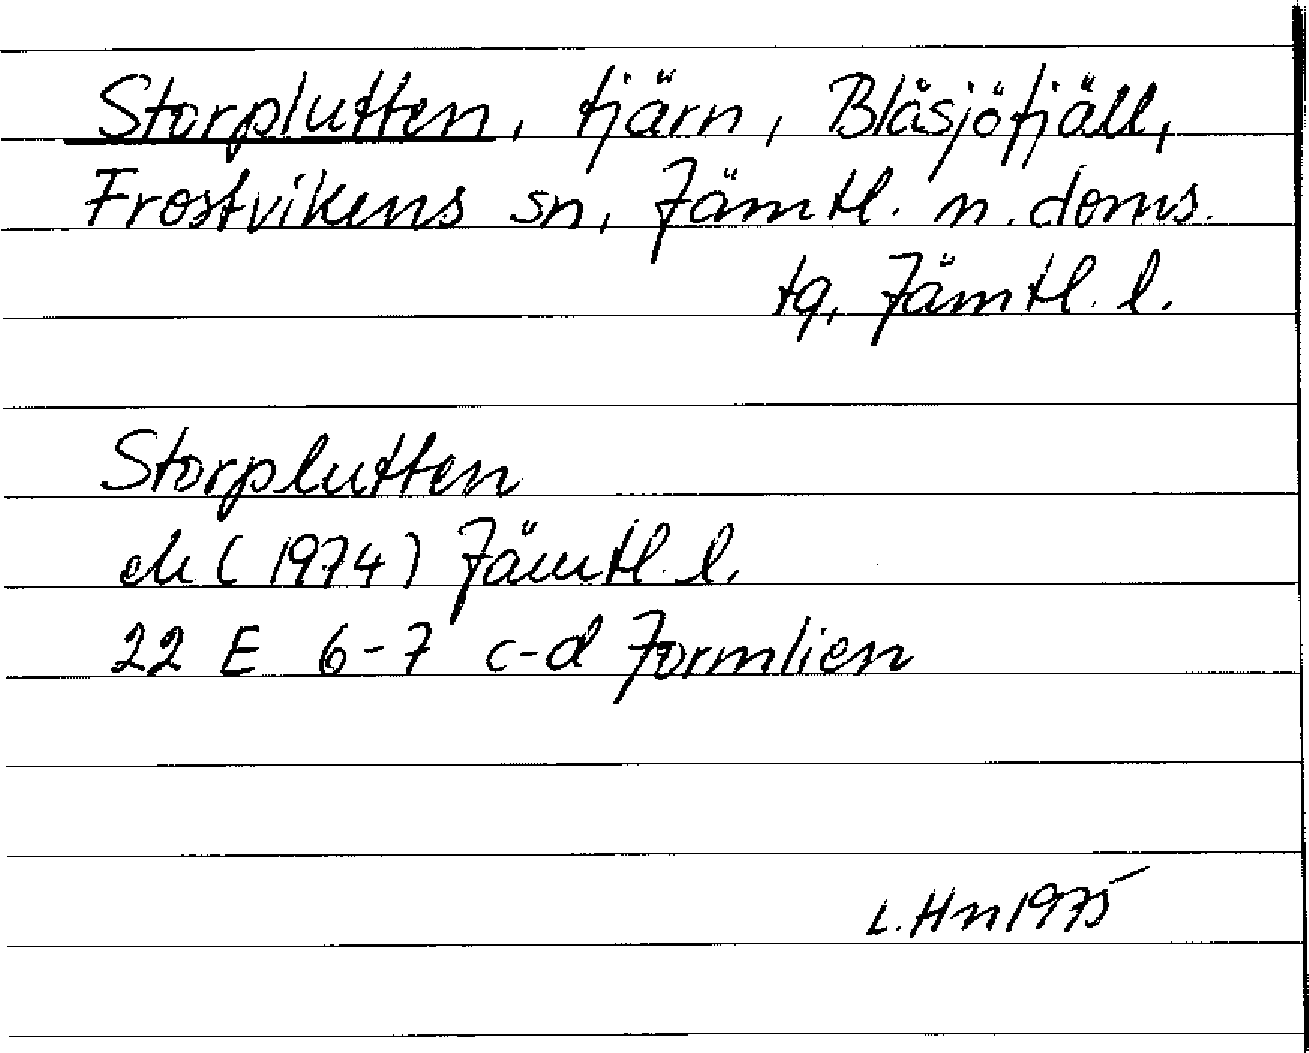 Storplutten, tjärn, Blåsjöfjäll,
Frostvikens sn, Jämtl. n. doms.
tq, Jämtl. l.
Storplutten
ek (1974) Jämtl. l.
22 E 6-7 c-d Jormlien
L. Hn 1975